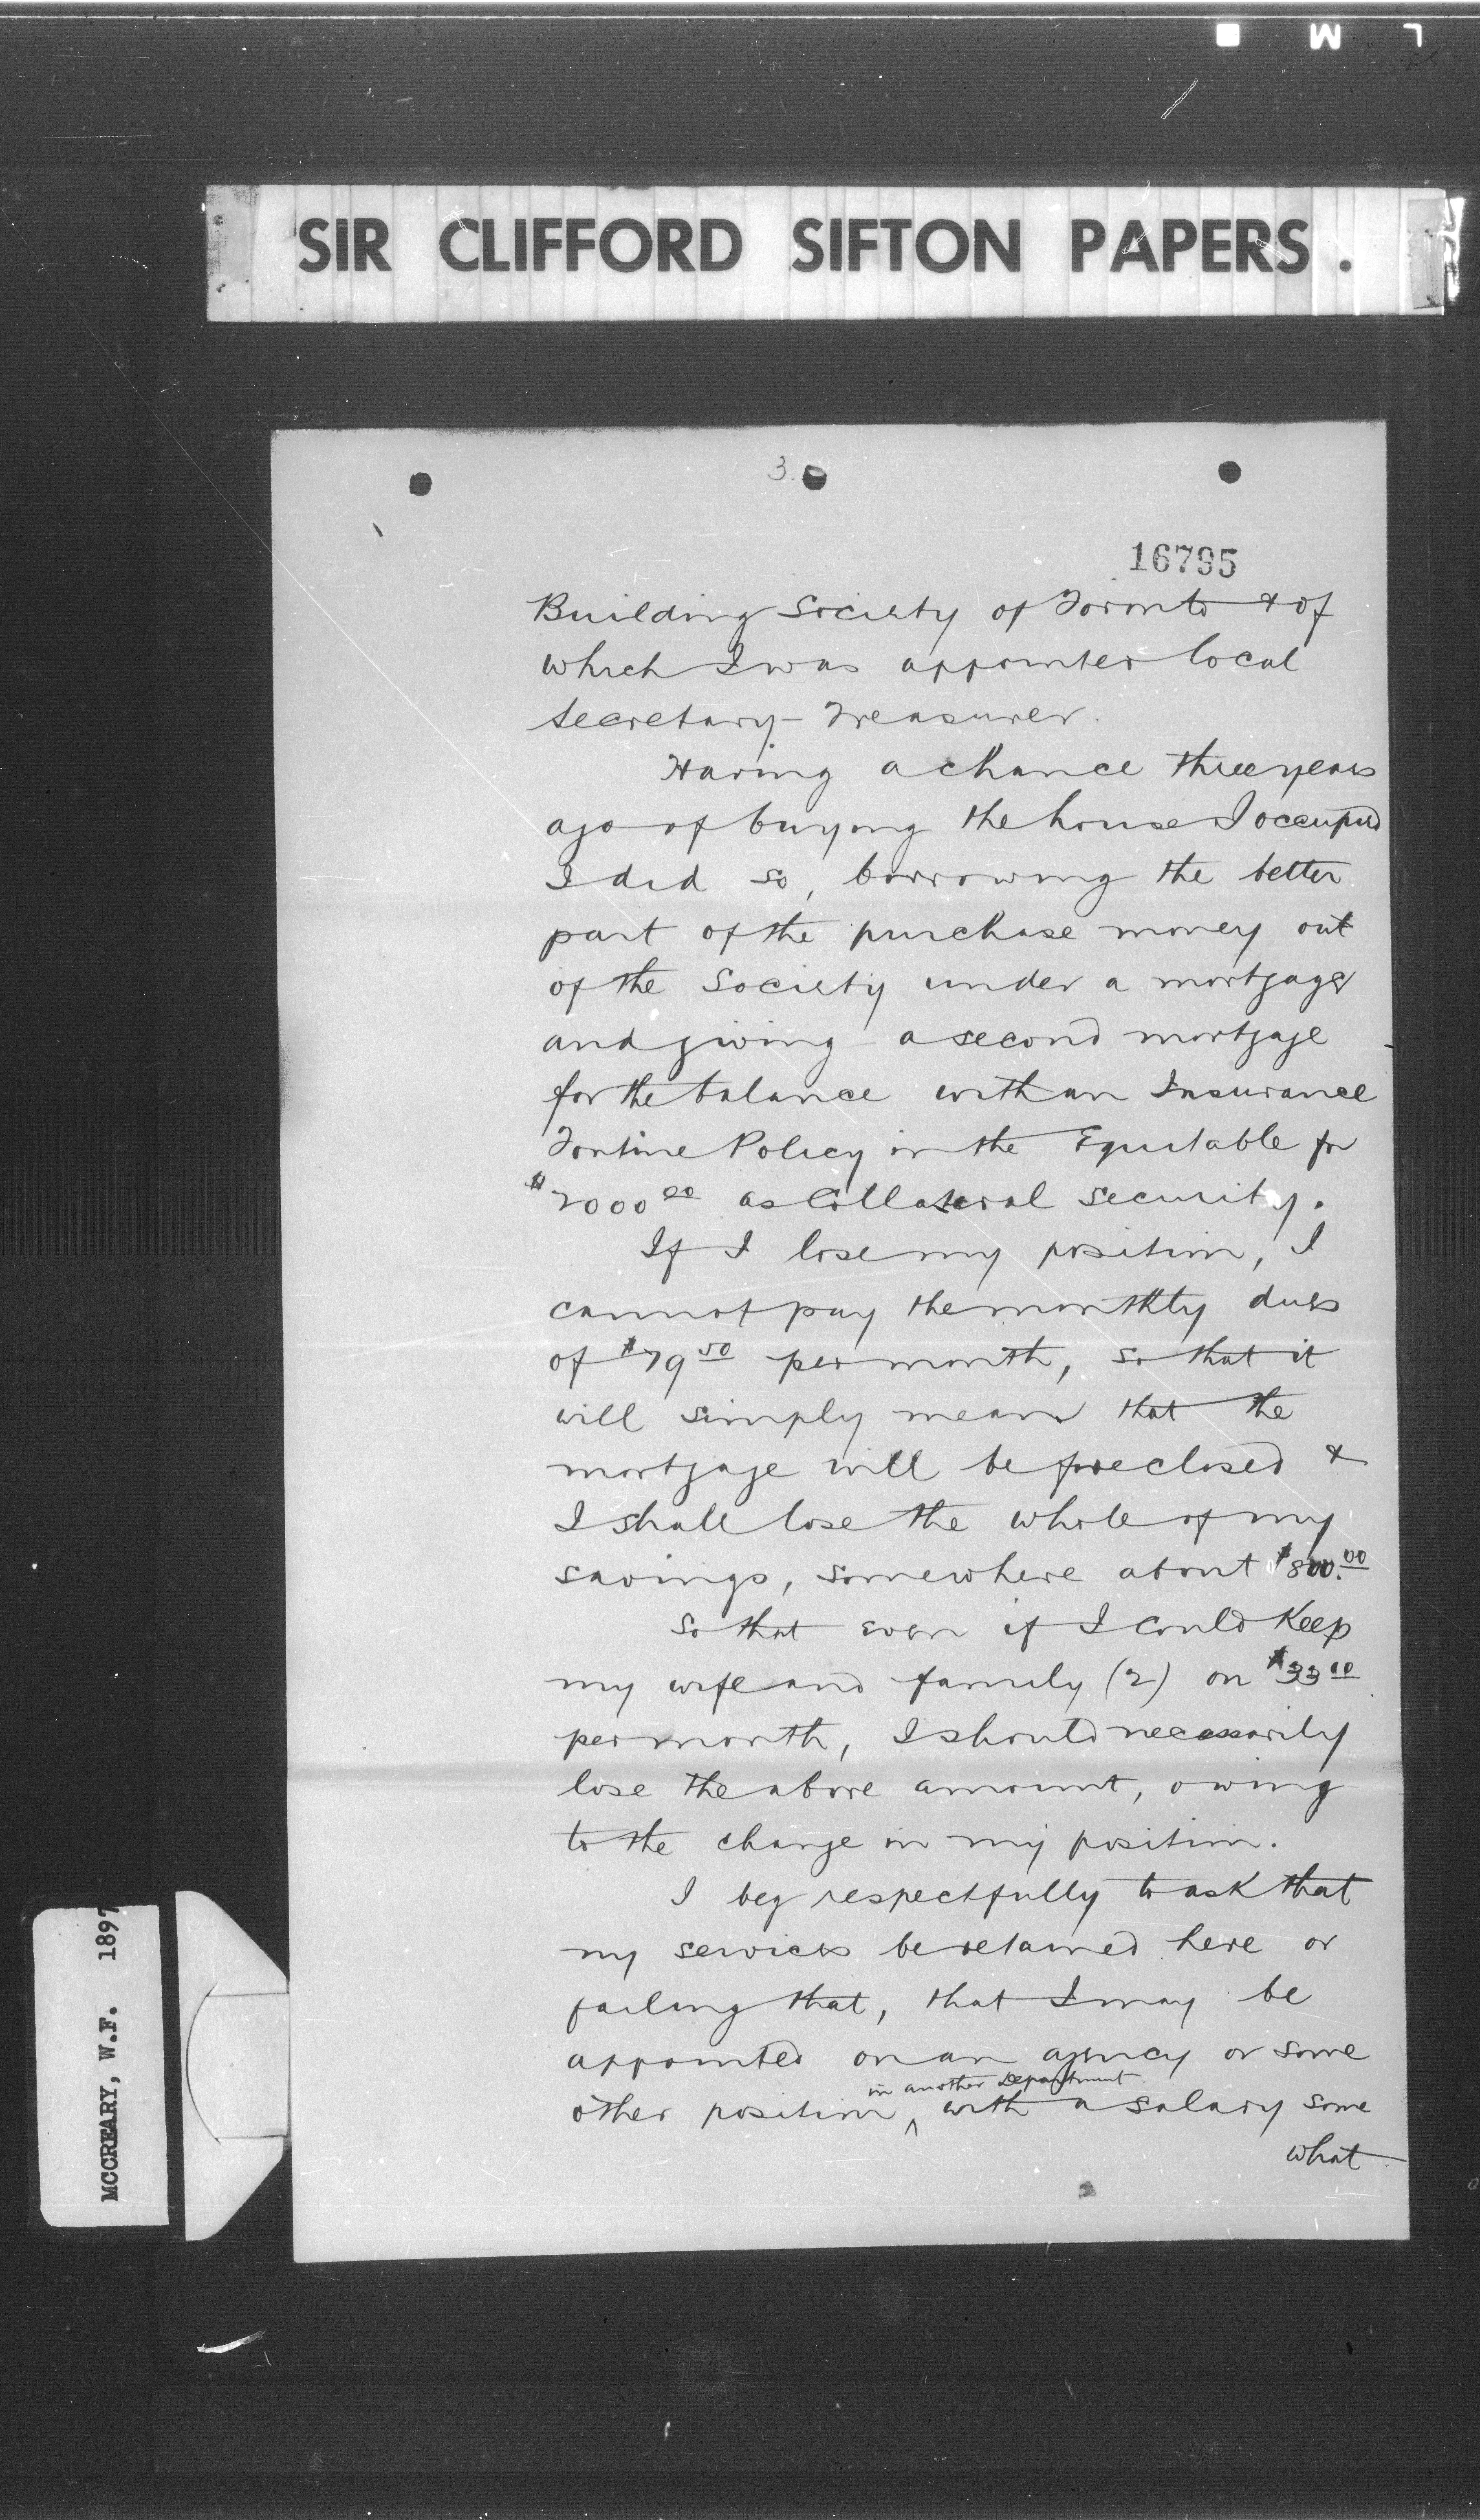 L M
SIR CLIFFORD SIFTON PAPERS.
3.
16795
Building Society of Toronto & of
which I was appointed local
Secretary-Treasurer.
Having a chance three years
ago of buying the house I occupied
I did so, borrowing the better
part of the purchase money out
of the Society under a mortgage
and giving a second mortgage
for the balance with an Insurance
Tontine Policy in the Equitable for
$2000 00 as Collateral security.
If I lose my position, I
cannot pay the monthly dues
of $19 50 per month, so that it
will simply mean that the
mortgage will be foreclosed &
I shall lose the whole of my
savings, somewhere about $800.00
So that even if I could Keep
my wife and family (2) on $33 00
per month, I should necessarily
lose the above amount, owing
to the change in my position.
I beg respectfully to ask that
my services be retained here or
failing that, that I may be
appointed on an agency or some
in another Department
other position ^ with a salary some
what
MCCREARY, W.F. 1897